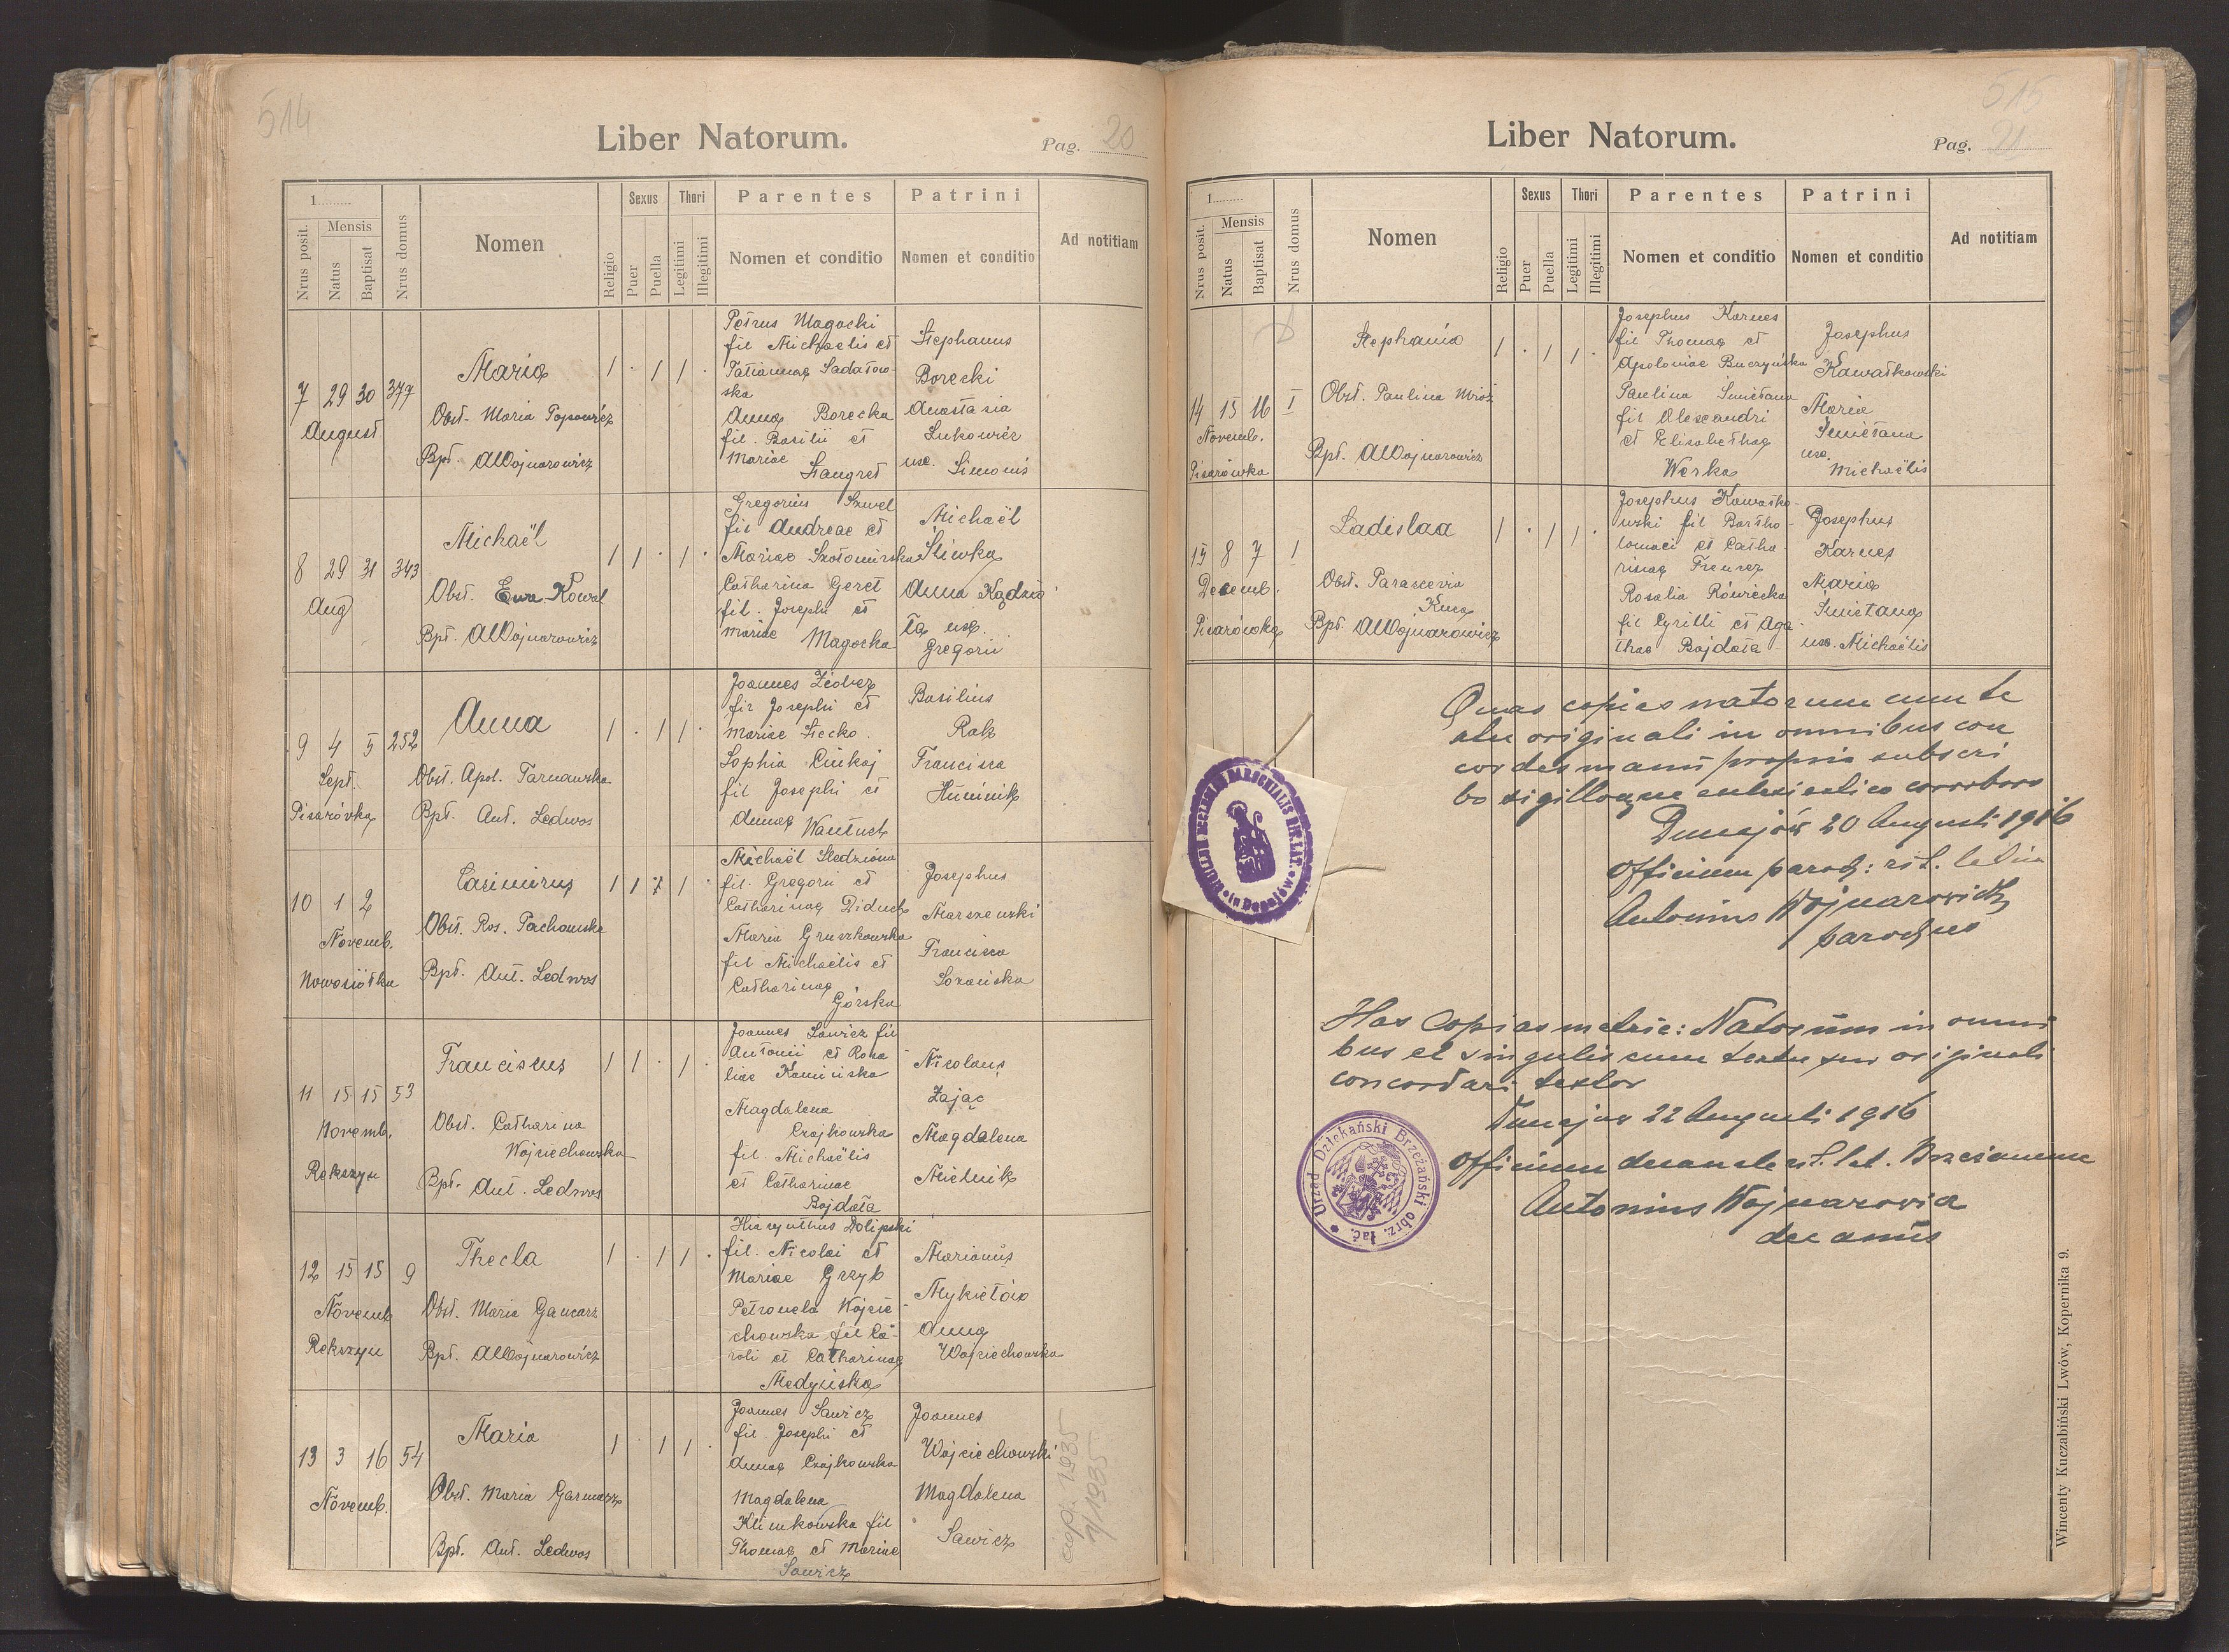 514
Liber Natorum.
Pag. 20
1
Nrus posit.
Mensis
Natus
Baptisat
Nrus domus
Nomen
Religio
Sexus
Puer
Puella
Thori
Legitimi
Illegitimi
Parentes
Nomen et conditio
Patrini
Nomen et conditio
Ad notitiam
7 29 30 379
August
Maria
Obst. Maria Popowicz
Bpt. AWojnarowicz
1 . 1 1 .
Petrus Magocki
fil Michaelis et
Tatiannae Sadatow-
ska
Anna Borecka
fil. Basilii et
Mariae
Stangret
Stephanus
Borecki
Anastasia
Lukowicz
ux. Simonis
8 29 31 343
Aug
Michaël
Obst. Ewa Kowal
Bpt. AWojnarowicz
1 1 . 1 .
Gregorius Szwel
fil Andreae et
Mariae
Catharina Geret
fil. Josephi et
Mariae Magocka
Michaël
Sliwka
Anna Kądzio
ła ux.
Gregorii
9 4 5 252
Sept.
Pisarówka
Anna
Obst. Apol. Tarnawska
Bpt. Ant. Ledwos
1 . 1 1 .
Joannes
fil Josephi et
Mariae Siecko
Sophia
fil Josephi et
Annae Wantuch
Basilius
Rak
Francisca
Huminik
10 1 2
Novemb.
Nowosiółka
Casimirus
Obst. Ros. Pachowska
Bpt. Ant. Ledwos
1 1 . 1 .
Michaël Sledziona
fil. Gregorii et
Catharinae Diduch
Maria Gruszkowska
fil Michaëlis et
Catharinae
Górska
Josephus
Marszewski
Francisca
Lozańska
11 15 15 53
Novemb.
Rekszyn
Franciscus
Obst. Catharina
Wojciechowska
Bpt. Ant. Ledwos
1 1 . 1 .
Joannes Sawicz fil
Antonii et Rosa
liae Kaminska
Magdalena
Czajkowska
fil. Michaëlis
et Catharinae
Bojdała
Nicolaus
Zając
Magdalena
Mielnik
12 15 15 9
Novemb
Rekszyn
Thecla
Obst. Maria Gancarz
Bpt. AWojnarowicz
1 . 1 1 .
Hiacynthus Dolipski
fil. Nicolai et
Mariae Grzyb
Petronela Wojcie-
chowska fil Ca-
roli et Catharinae
Medyńska
Marianus
Mykietów
Anna
Wojciechowska
13 3 16 54
Novemb.
Maria
Obst. Maria Garncarz
Bpt. Ant. Ledwos
1 . 1 1 .
Joannes Sawicz
fil. Josephi et
Annae Czajkowska
Magdalena
Klimkowska fil
Thomae et Mariae
Sawicz
Joannes
Wojciechowski
Magdalena
Sawicz
1935
1/1935
515
Liber Natorum.
Pag. 21
1
Nrus posit.
Mensis
Natus
Baptisat
Nrus domus
Nomen
Religio
Sexus
Puer
Puella
Thori
Legitimi
Illegitimi
Parentes
Nomen et conditio
Patrini
Nomen et conditio
Ad notitiam
14 15 16 I
Novemb.
Pisarówka
Stephania
Obst. Paulina Mróz
Bpt. AWojnarowicz
1 . 1 1 .
Josephus Karnes
fil Thomae et
Apoloniae Buczyńska
Paulina Smietana
fil Alexandri
et Elisabethae
Werka
Josephus
Kawałkowski
Maria
Smietana
ux.
Michaëlis
15 8 7 I
Decemb.
Pisarówka
Ladislaa
Obst. Parascevia
Bpt. AWojnarowicz
1 . 1 1 .
Josephus Kawałko-
wski fil Bartho-
lomaei et Catha-
rinae
Rosalia Rówiecka
fil Cyrilli et Aga-
thae Bojdała
Josephus
Karnes
Maria
Smietana
ux. Michaëlis
Quas copias natorum cum te
xtu originali in omnibus con
cordes manu propria subscri
bo sigilloque eclesiastico corroboro
Dunajów 20 Augusti 1916
Officium paroch: rit. latin
Antonius Wojnarowicz
parochus
SIGILLUM ECCLESIAE PAROCHIALIS RIT. LAT. in Dunajów
Has Copias metric: Natorum in omni
bus et singulis cum textu suo originali
concordari testor
Dunajów 22 Augusti 1916
Officium decanale rit. lat. Brzezanense
Antonius Wojnarowicz
decanus
Urząd Dziekański Brzeżański obrz. łać.
Wincenty Kuczabiński Lwów, Kopernika 9.